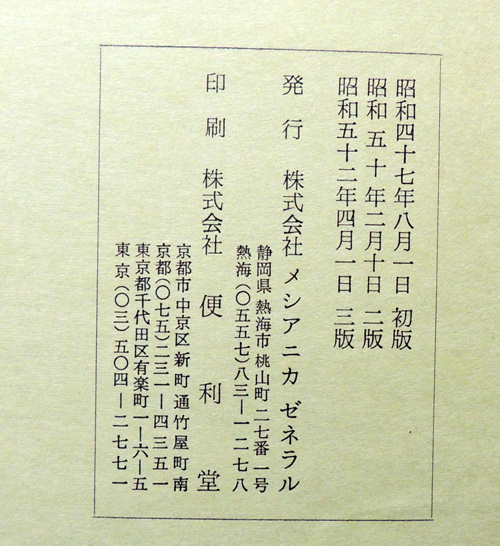 昭和四十七年八月一日 初版
昭和五十年二月十日 二版
昭和五十二年四月一日 三版
発行 株式会社 メシアニカ ゼネラル
静岡県熱海市桃山町二七番一号
熱海(〇五五七)八三―一二七八
印刷 株式会社 便利堂
京都市中京区新町通竹屋町南
京都(〇七五)二三一―四三五一
東京都千代田区有楽町一―六―五
東京(〇三)五〇四―二七七一